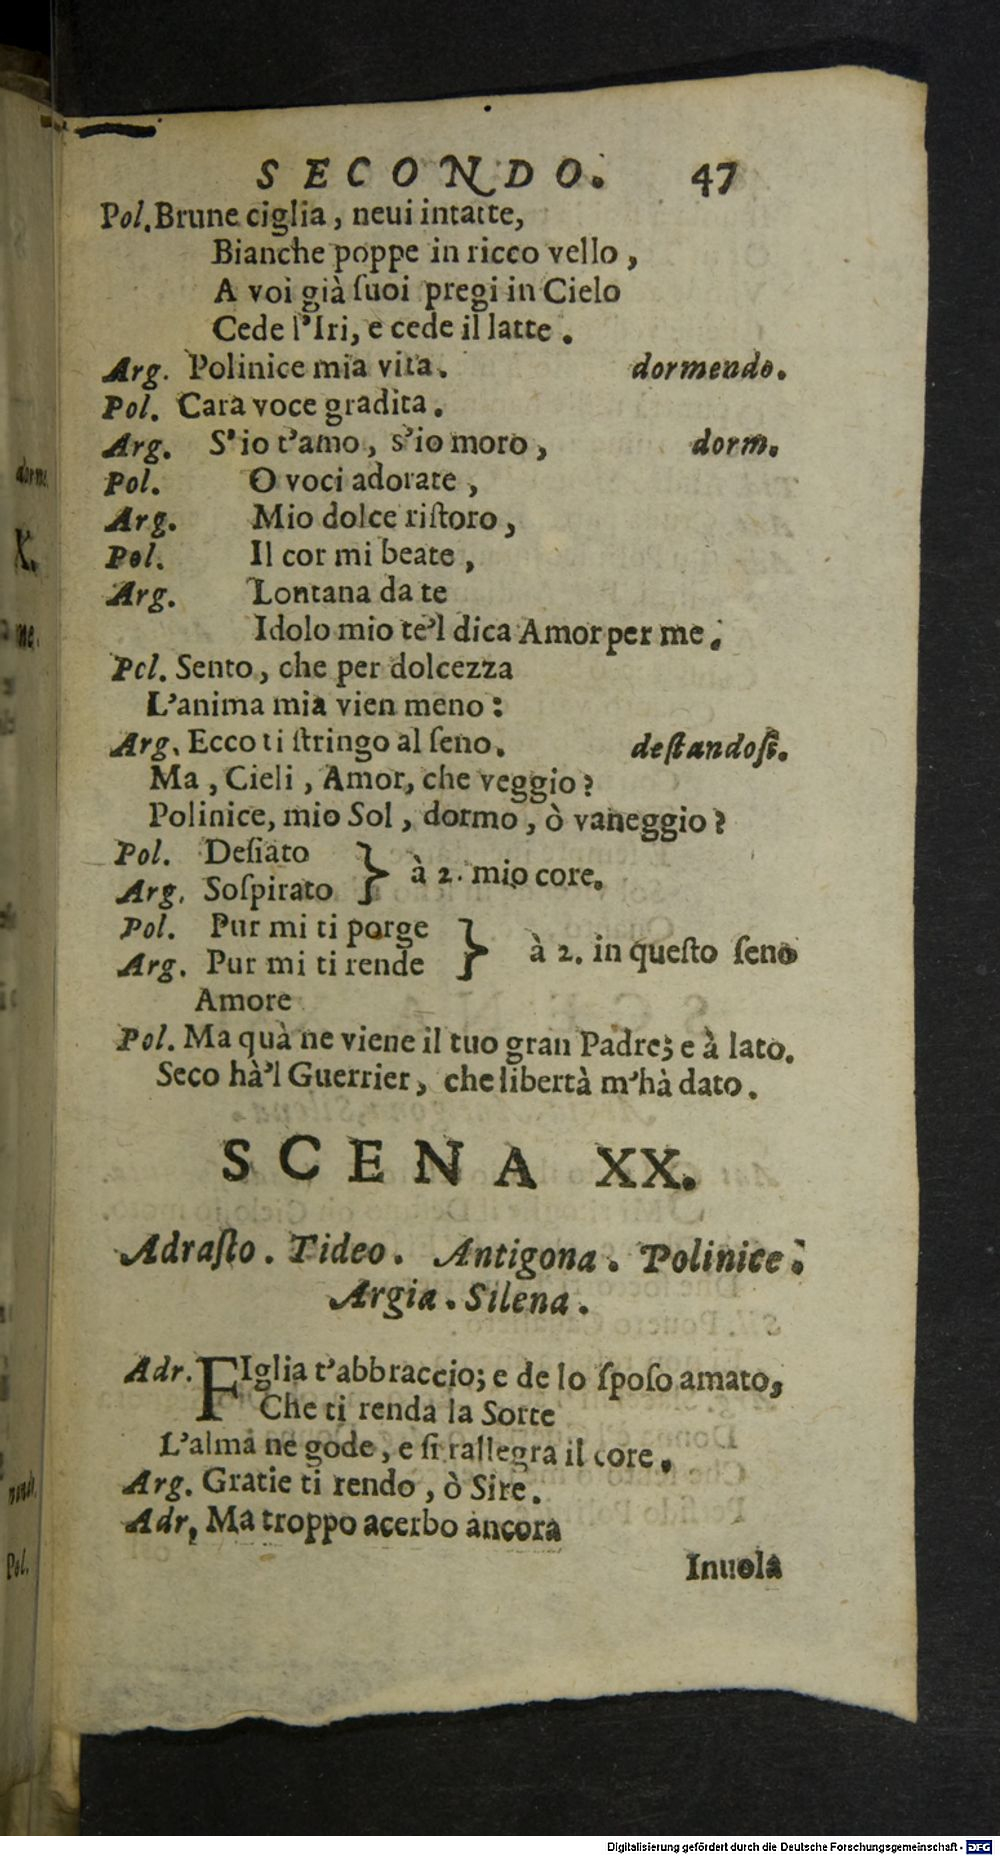 SECONDO. 47
Pol. Brune ciglia, neui intatte,
Bianche poppe in ricco vello,
A voi già ſuoi pregi in Cielo
Cede l'Iri, e cede il latte.
Arg. Polinice mia vita. dormendo.
Pol. Cara voce gradita.
Arg. S'io t'amo, s'io moro, dorm.
Pol. O voci adorate,
Arg. Mio dolce riſtoro,
Pol. Il cor mi beate,
Arg. Lontana da te
Idolo mio te'l dica Amor per me.
Pol. Sento, che per dolcezza
L'anima mia vien meno:
Arg. Ecco ti ſtringo al ſeno. deſtandoſi.
Ma, Cieli, Amor, che veggio?
Polinice, mio Sol, dormo, ò vaneggio?
Pol. Deſiato
Arg. Soſpirato } à 2. mio core.
Pol. Pur mi ti porge
Arg. Pur mi ti rende } à 2. in queſto ſeno
Amore
Pol. Ma quà ne viene il tuo gran Padre; e à lato.
Seco hà'l Guerrier, che libertà m'hà dato.
SCENA XX.
Adraſto. Tideo. Antigona. Polinice.
Argia. Silena.
Adr. FIglia t'abbraccio; e de lo ſpoſo amato,
Che ti renda la Sorte
L'alma ne gode, e ſi rallegra il core.
Arg. Gratie ti rendo, ò Sire.
Adr. Ma troppo acerbo ancora
Inuola
dorme.
X.
me.
Pol.
Digitalisierung gefördert durch die Deutsche Forschungsgemeinschaft - DFG